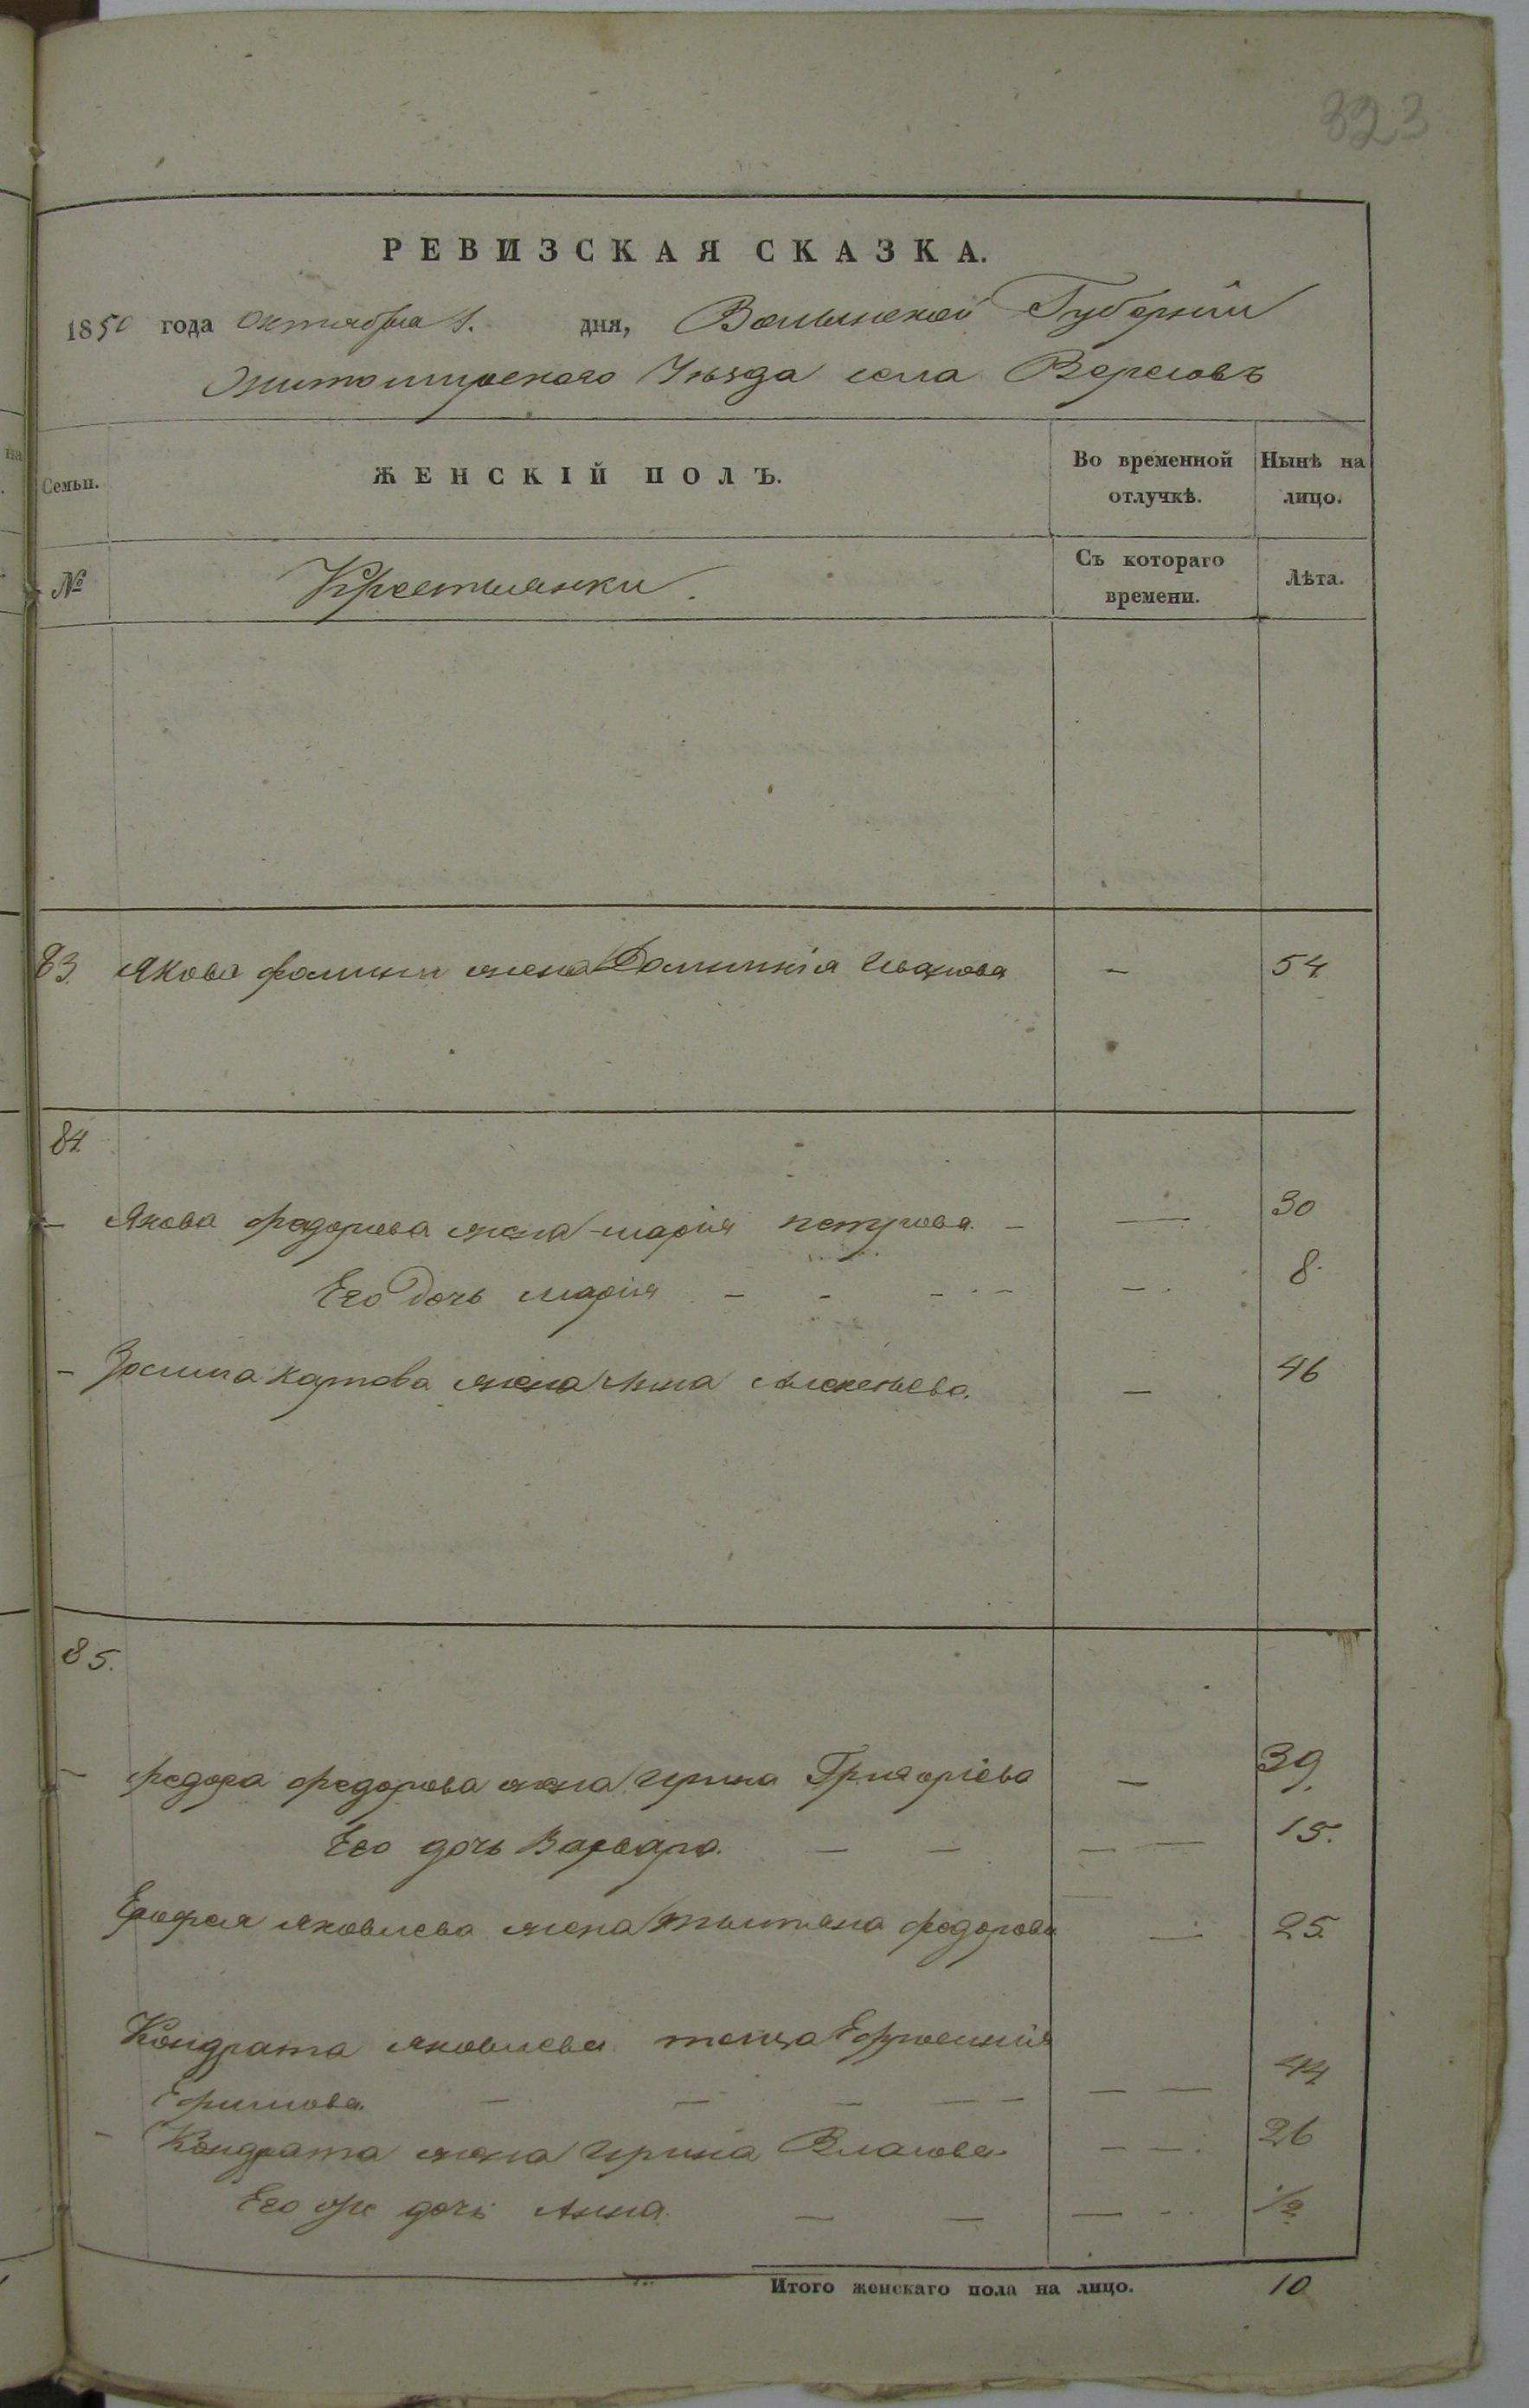 323
РЕВИЗСКАЯ СКАЗКА.
1850 года Октября 1. дня, Волынской Губерніи
Житомирского Уѣзда села Вересовъ
Семьи. ЖЕНСКІЙ ПОЛЪ. Во временной отлучкѣ. Нынѣ на лицо.
№ Крестьянки. Съ котораго времени. Лѣта.
83. Якова Фомина жена Домникія Иванова — 54
84
— Якова Федорова жена Марія Петрова — — 30
Его дочь Марія — — — — 8.
— Зосима Карпова жена Анна Алексѣева. — 46
85.
— Федора Федорова жена Ирина Григоріева — 39.
Его дочь Варвара. — — — — 15.
Ерофея Яковлева жена Татьяна Федорова — 25.
Кондрата Яковлева теща Ефросинія
Ефимова. — — — — — — — 44
— Кондрата жена Ирина Власова — — 26
Его же дочь Анна — — — 1/2
Итого женскаго пола на лицо. 10